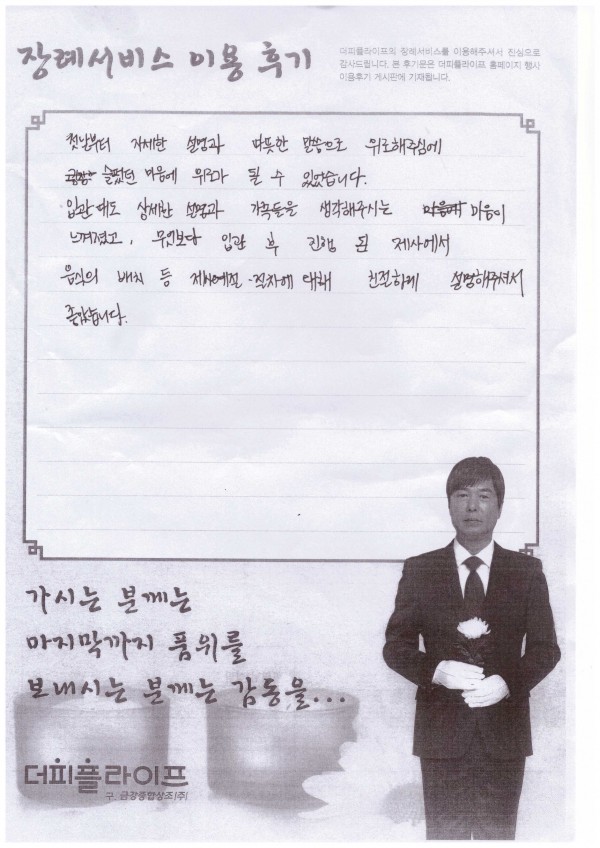 장례서비스 이용 후기
더피플라이프의 장례서비스를 이용해주셔서 진심으로
감사드립니다. 본 후기문은 더피플라이프 홈페이지 행사
이용후기 게시판에 기재됩니다.
첫날부터 자세한 설명과 따뜻한 말씀으로 위로해주심에
슬펐던 마음에 위로가 될 수 있었습니다.
입관때도 상세한 설명과 가족들을 생각해주시는 마음이
느껴졌고, 무엇보다 입관 후 진행 된 제사에서
음식의 배치 등 제사예절·절차에 대해 친절하게 설명해주셔서
좋았습니다.
가시는 분께는
마지막까지 품위를
보내시는 분께는 감동을...
더피플라이프
구. 금강종합상조(주)